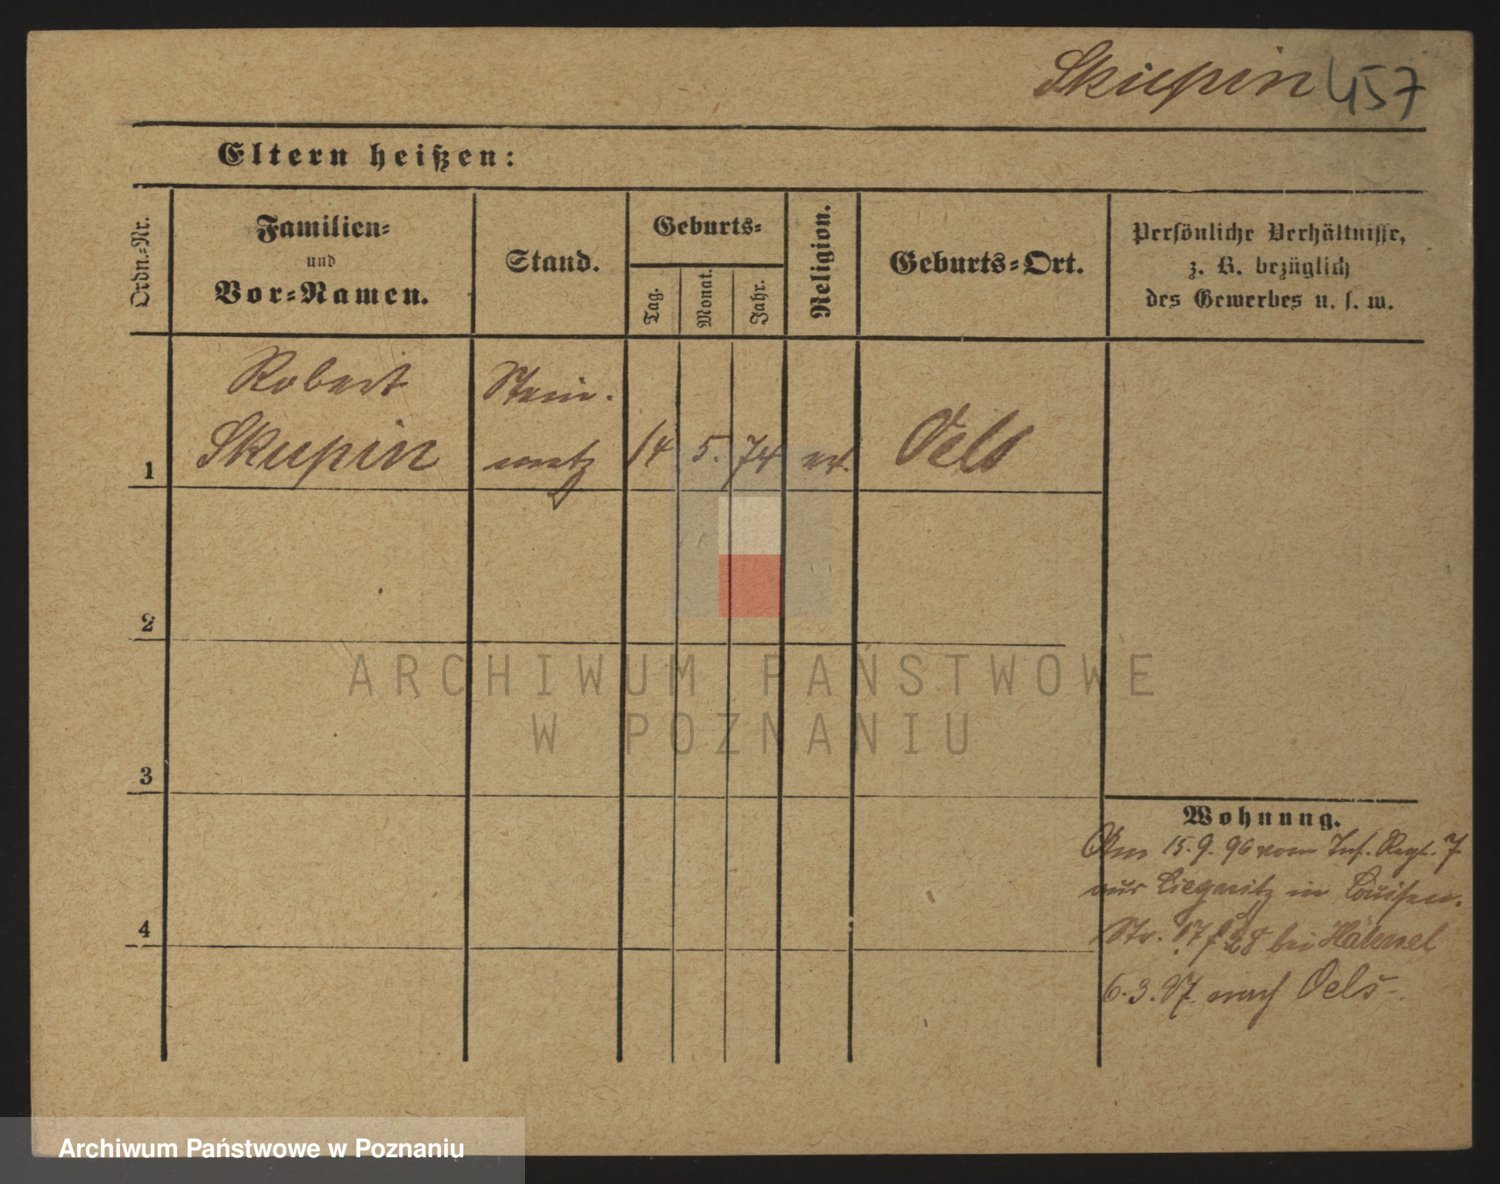 Skupin 457
Eltern heißen:
Ordn.-Nr.
Familien-
und
Vor-Namen.
Stand.
Geburts-
Tag.
Monat.
Jahr.
Religion.
Geburts-Ort.
Persönliche Verhältnisse,
z. B. bezüglich
des Gewerbes u. s. w.
Robert
Skupin
Stein-
metz
1
14
5.
74
ev.
Oels
2
3
4
Wohnung.
Am 15.9.96 vom Inf. Regt. 7
aus Liegnitz in Louisen-
Str. 17 28 bei Hänsel
6.3.97 nach Oels.
ARCHIWUM PAŃSTWOWE
W POZNANIU
Archiwum Państwowe w Poznaniu